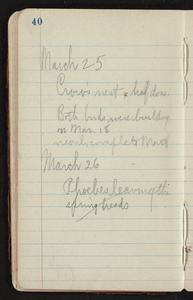 40
March 25
Crow's nest half done
Both birds were building
on Mar. 18
nearly complete
March 26
Phoebes leaving
spring heads